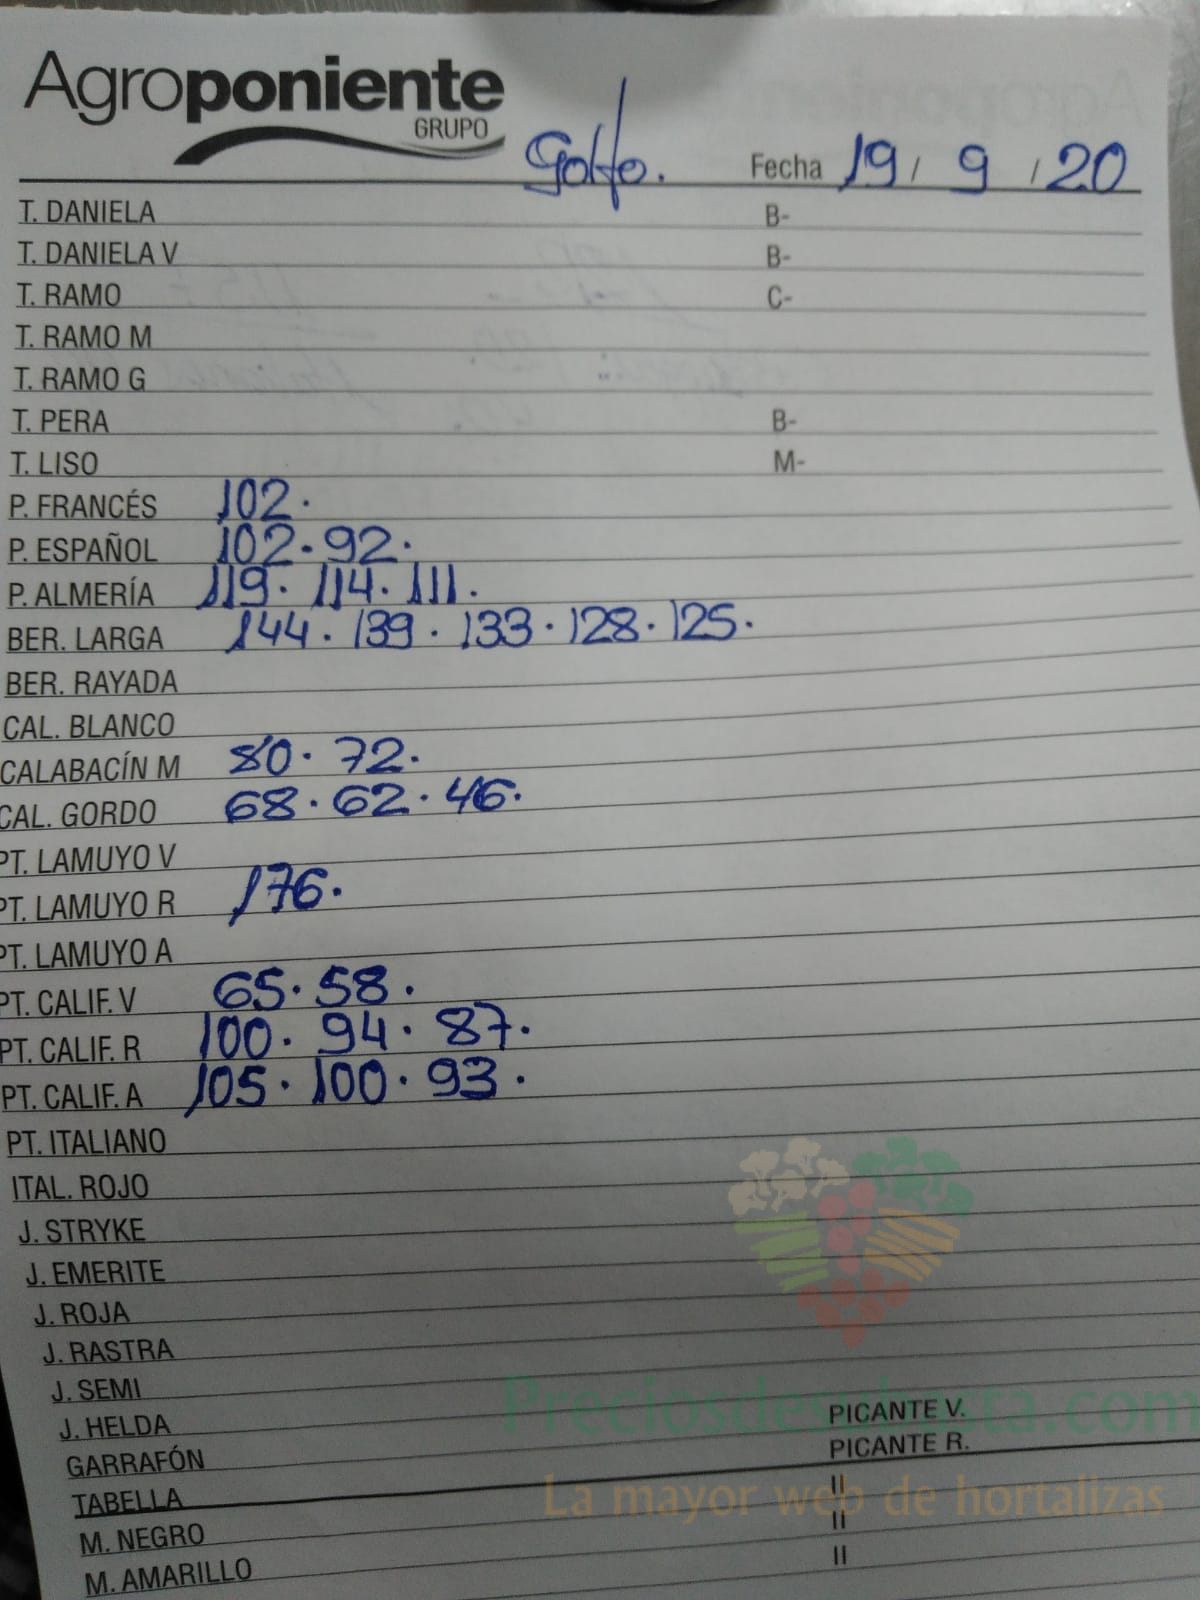 Agroponiente
GRUPO
Golfo. Fecha 19 / 9 / 20
T. DANIELA B-
T. DANIELA V B-
T. RAMO C-
T. RAMO M
T. RAMO G
T. PERA B-
T. LISO M-
P. FRANCÉS 102.
P. ESPAÑOL 102. 92.
P. ALMERÍA 119. 114. 111.
BER. LARGA 144. 139. 133. 128. 125.
BER. RAYADA
CAL. BLANCO
CALABACÍN M 80. 72.
CAL. GORDO 68. 62. 46.
PT. LAMUYO V
PT. LAMUYO R 176.
PT. LAMUYO A
PT. CALIF. V 65. 58.
PT. CALIF. R 100. 94. 87.
PT. CALIF. A 105. 100. 93.
PT. ITALIANO
ITAL. ROJO
J. STRYKE
J. EMERITE
J. ROJA
J. RASTRA
J. SEMI
J. HELDA PICANTE V.
GARRAFÓN PICANTE R.
TABELLA II
M. NEGRO II
M. AMARILLO II
Preciosdesubasta.com
La mayor web de hortalizas